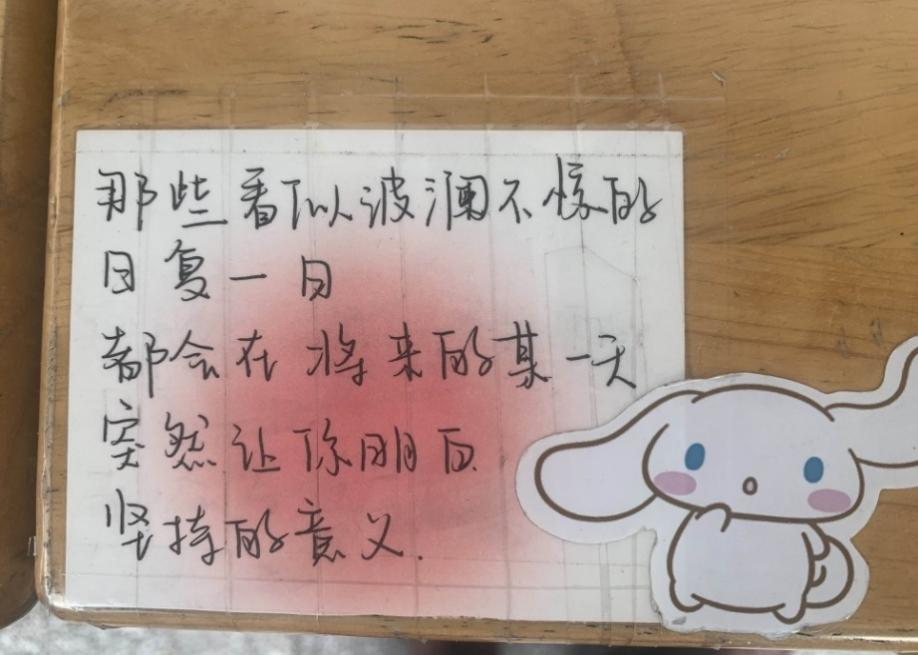 那些看似波澜不惊的
日复一日
都会在将来的某一天
突然让你明白
坚持的意义.